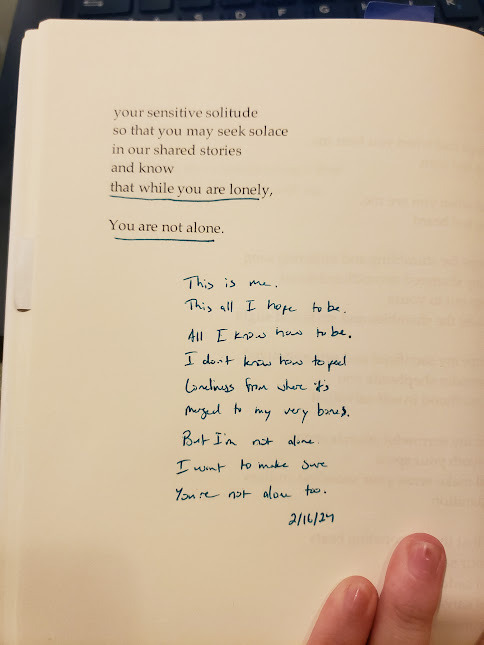 your sensitive solitude
so that you may seek solace
in our shared stories
and know
that while you are lonely,
You are not alone.
This is me.
This all I hope to be.
All I know how to be.
I don't know how to peel
Loneliness from where it's
merged to my very bones.
But I'm not alone.
I want to make sure
You're not alone too.
2/16/24